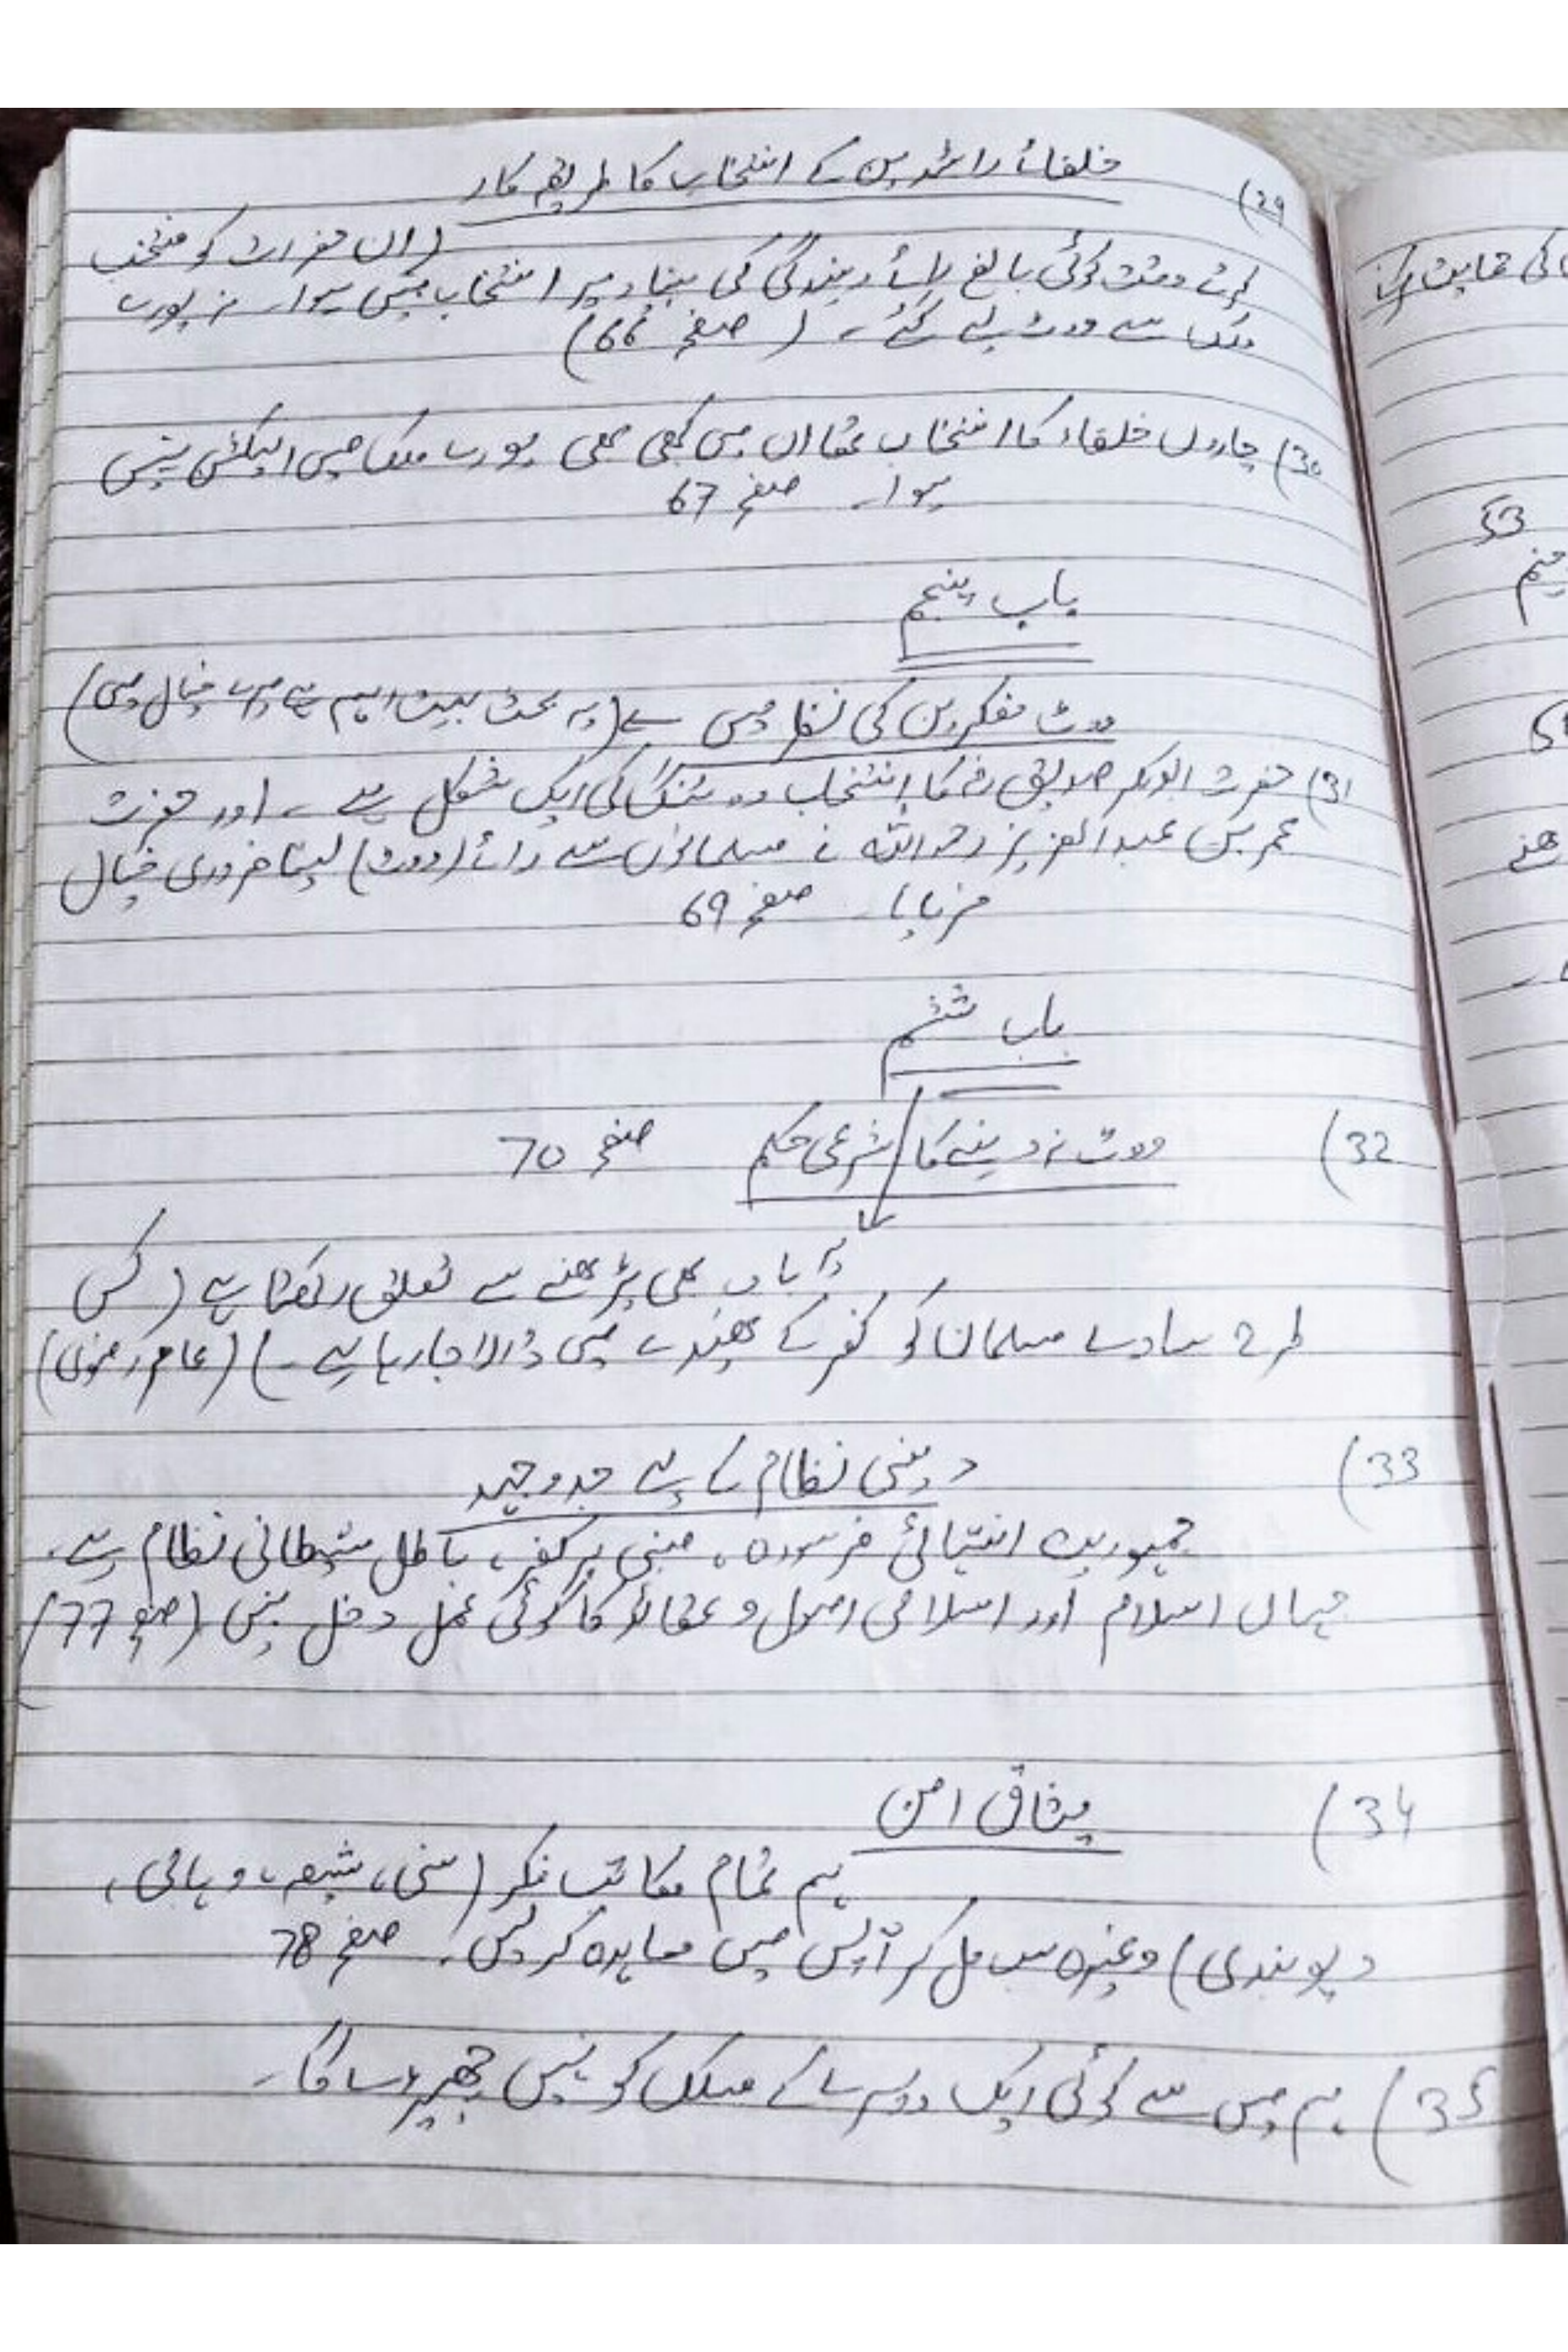 29) خلفائے راشدین کے انتخاب کا طریقہ کار
(ان حضرات کو منتخب
کرتے وقت کوئی بالغ رائے دہندگی کی بنیاد پر انتخاب نہیں ہوا۔ نہ پورے
ملک سے ووٹ لیے گئے۔ (صفحہ 66)
30) چاروں خلفاء کا انتخاب تھا ان میں کبھی بھی پورے ملک میں الیکشن نہیں
ہوا۔ صفحہ 67
باب پنجم
ووٹ مفکرین کی نظر میں (یہ بحث بہت اہم ہے میرے خیال میں)
31) حضرت ابوبکر صدیق رضہ کا انتخاب ووٹنگ کی ایک شکل ہے۔ اور حضرت
عمر بن عبدالعزیز رحمہ اللہ نے مسلمانوں سے رائے (ووٹ) لینا ضروری خیال
فرمایا۔ صفحہ 69
باب ششم
32) ووٹ نہ دینے کا شرعی حکم صفحہ 70
یہ باب بھی پڑھنے سے تعلق رکھتا ہے (کس
طرح سادے مسلمان کو کفر کے پھندے میں ڈالا جارہا ہے۔) (عامر رضوی)
33) دینی نظام کے لیے جدوجہد
جمہوریت انتہائی فرسودہ، مبنی بر کفر، باطل شیطانی نظام ہے۔
جہاں اسلام اور اسلامی اصول و عقائد کا کوئی عمل دخل نہیں (صفحہ 77)
34) میثاق امن
ہم تمام مکاتب فکر (سنی، شیعہ، وہابی،
دیوبندی) وغیرہ سب مل کر آپس میں معاہدہ کرلیں۔ صفحہ 78
35) ہم میں سے کوئی ایک دوسرے کے مسلک کو نہیں چھیڑے گا۔
کی حمایت
53